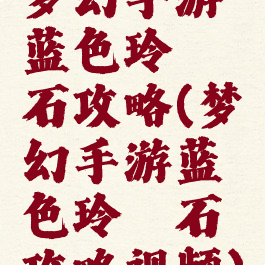 梦幻手游
蓝色玲
石攻略(梦
幻手游蓝
色玲 石
攻略视频)